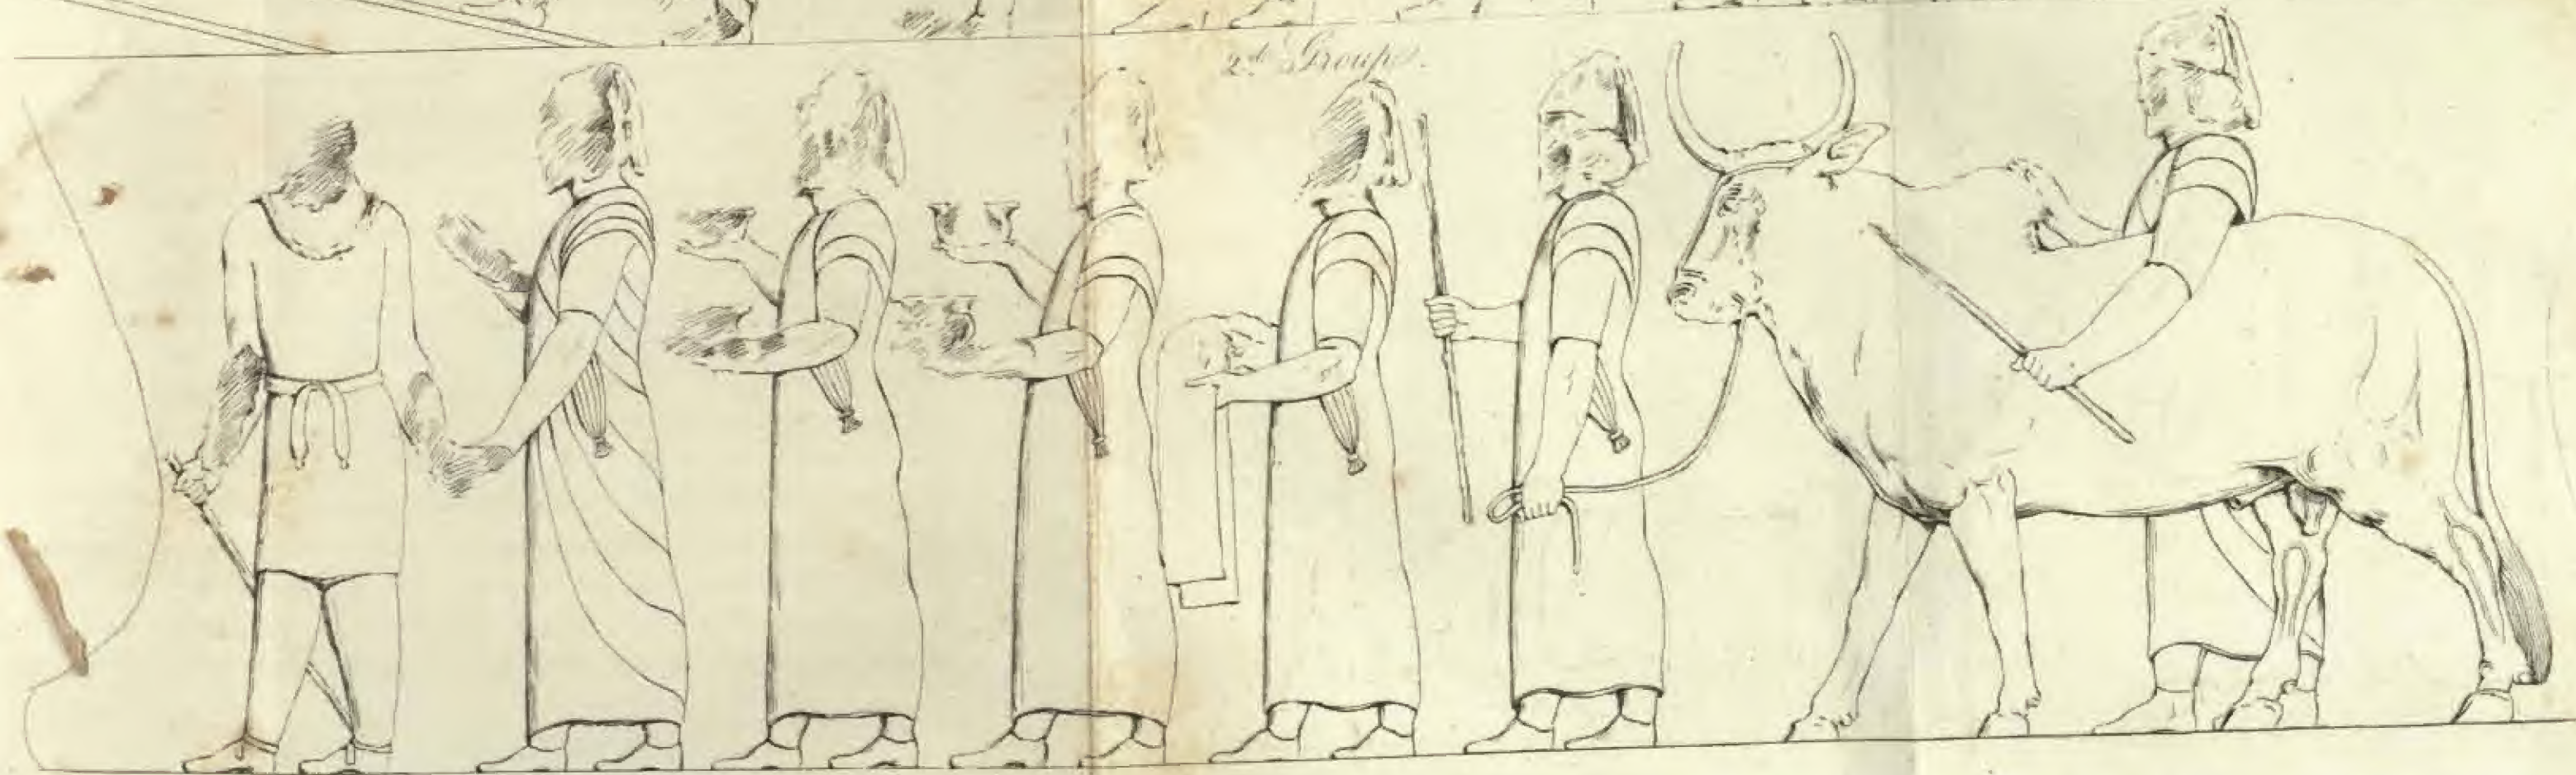 2.d Groupe.